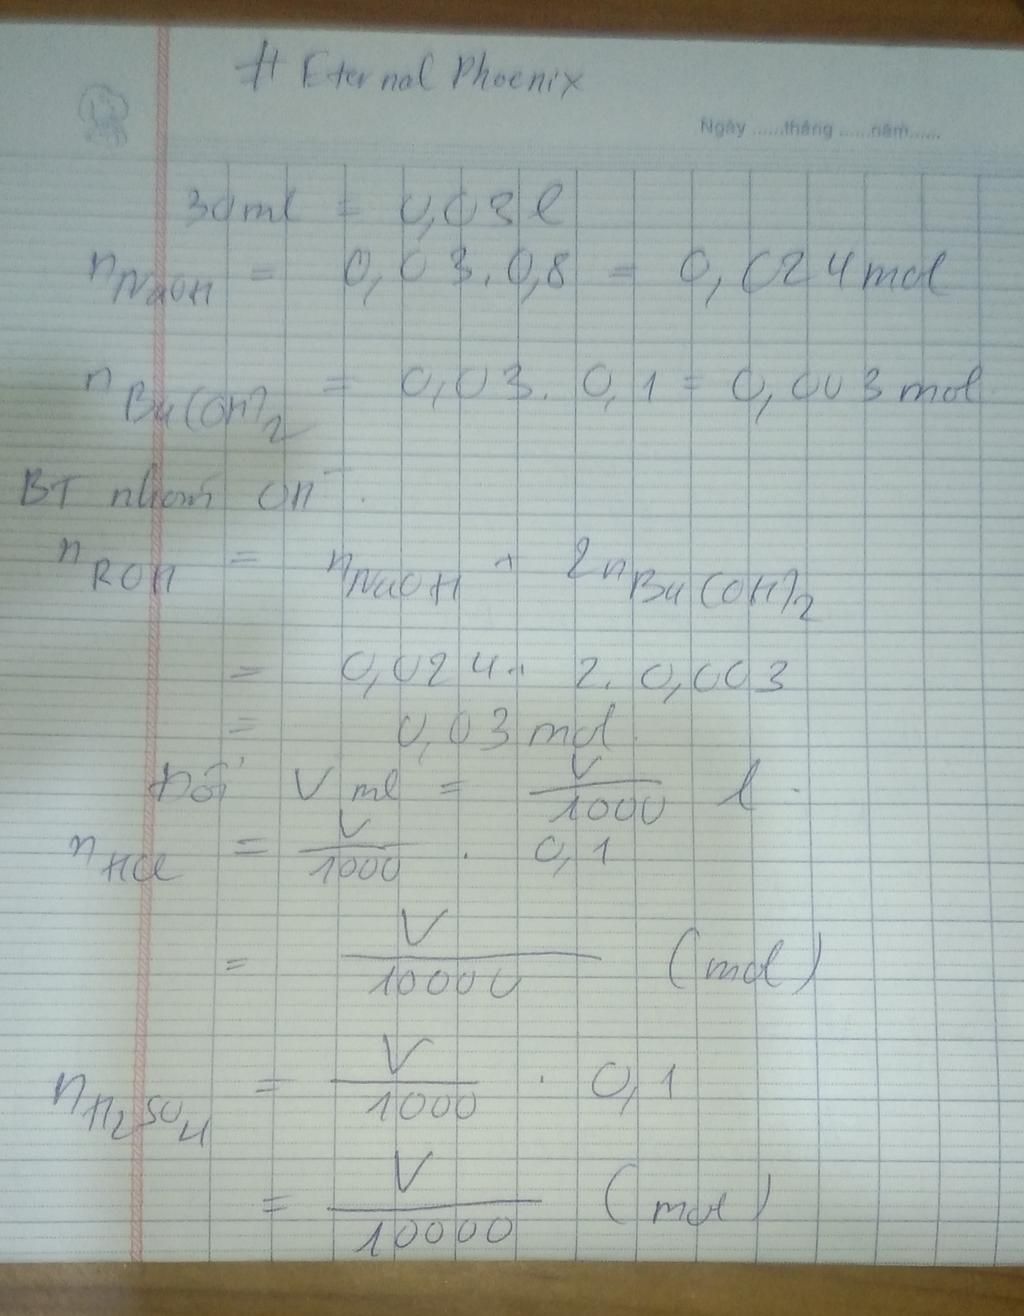 # Eternal Phoenix
Ngày ......tháng ......năm......
30ml = 0,03 l
nNaOH = 0,03 . 0,8 = 0,024 mol
nBa(OH)2 = 0,03 . 0,1 = 0,003 mol
BT nhóm OH⁻ :
nROH = nNaOH + 2nBa(OH)2
= 0,024 + 2. 0,003
= 0,03 mol
Đổi V ml = V/1000 l .
nHCl = V/1000 . 0,1
= V/10000 (mol)
nH2SO4 = V/1000 . 0,1
= V/10000 (mol)